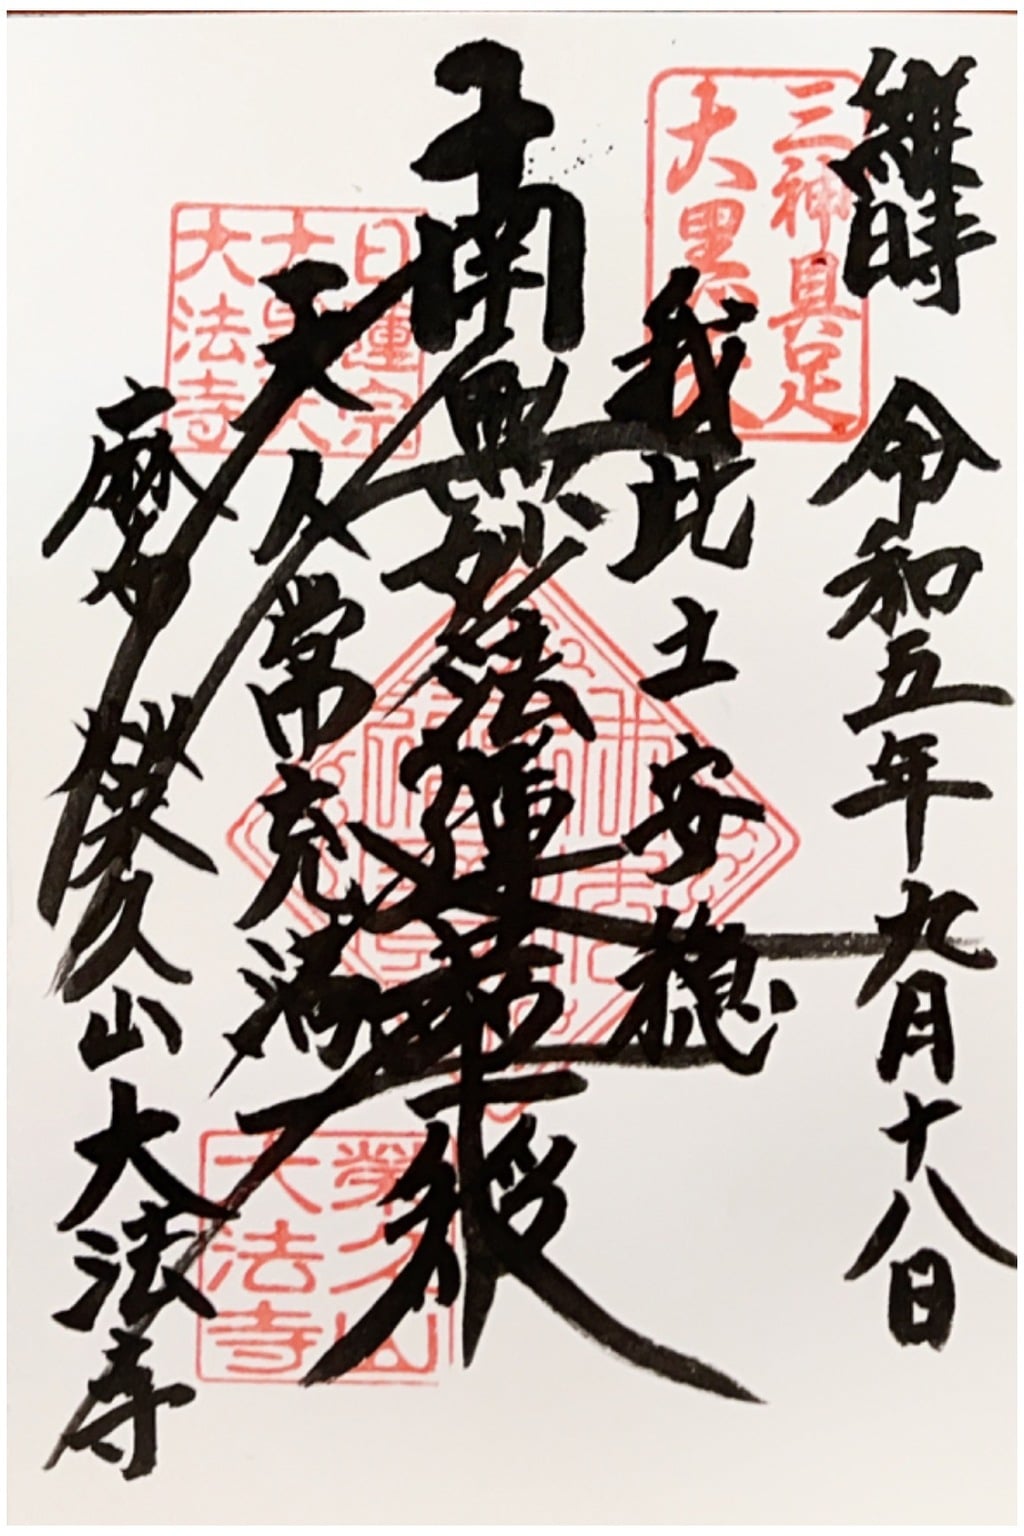 維時 令和五年九月十八日
三神具足
大黒天
我此土安穏
南無妙法蓮華経
天人常充満
日蓮宗
大黒天
大法寺
麻妙
榮久山大法寺
榮久山
大法寺